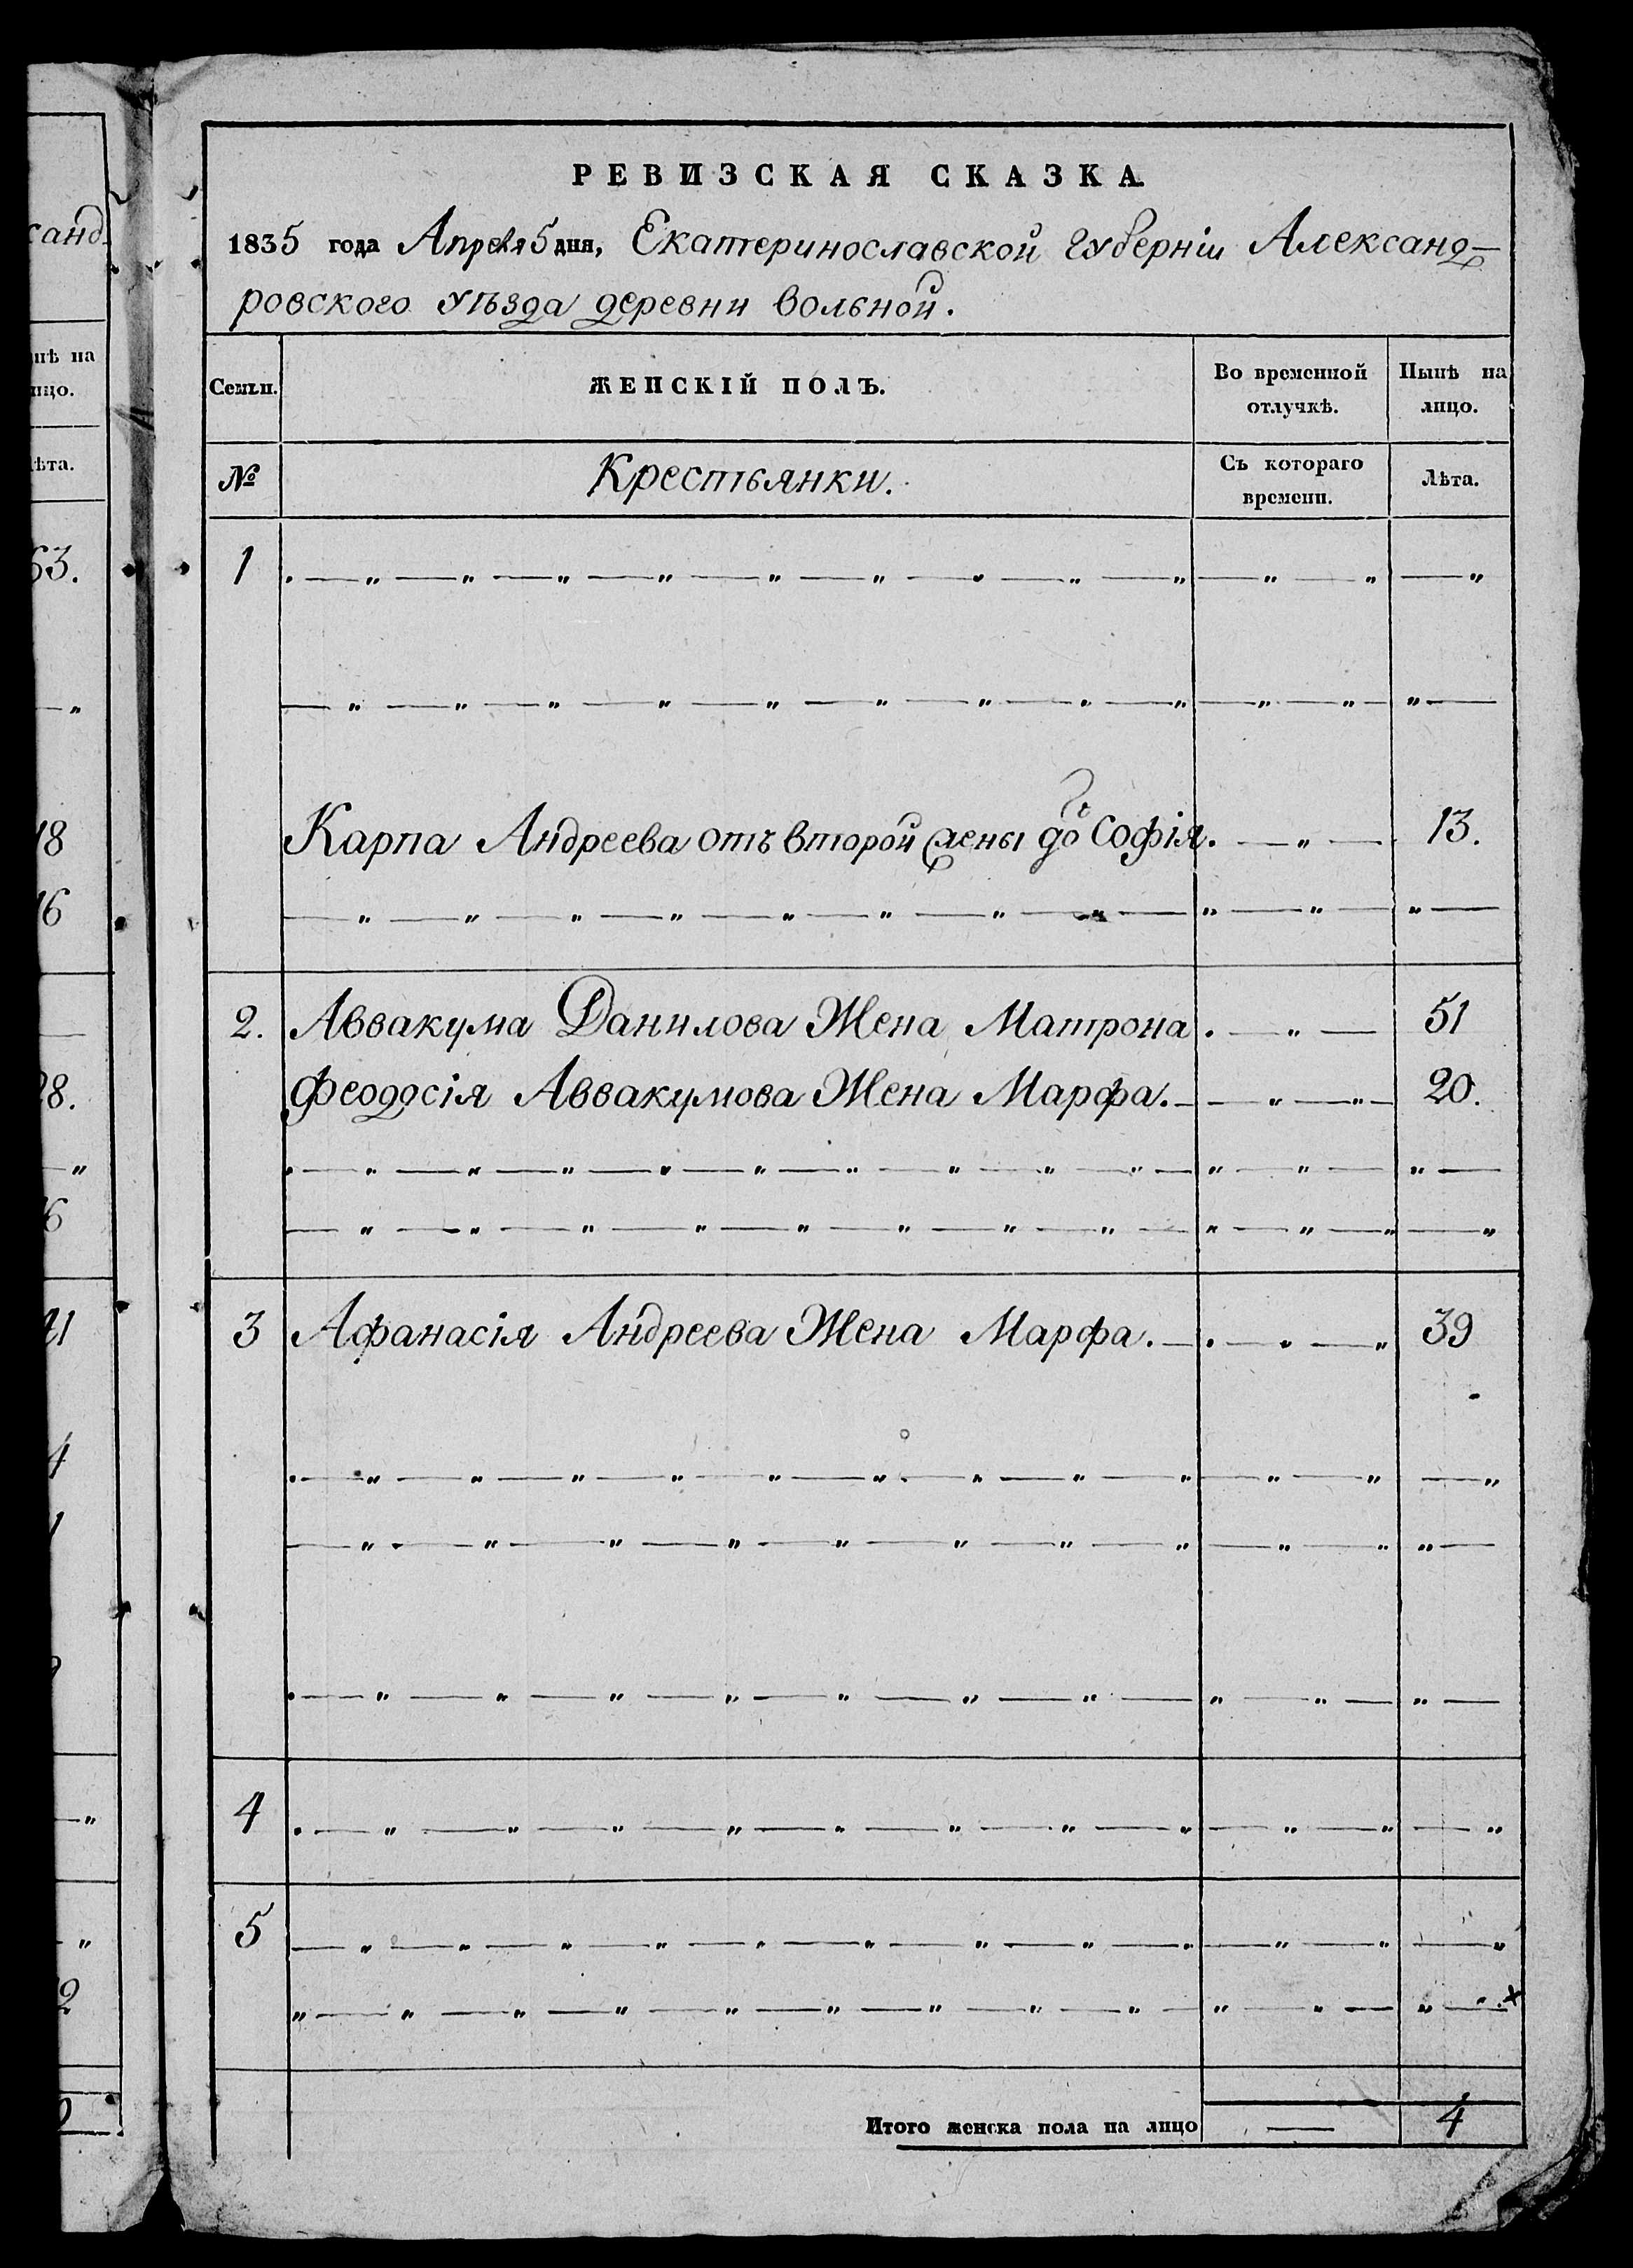 РЕВИЗСКАЯ СКАЗКА
1835 года Апреля 5 дня, Екатеринославской Губерніи Александ—
ровского уѣзда деревни Вольной.
Семьи. ЖЕНСКІЙ ПОЛЪ. Во временной отлучкѣ. Нынѣ на лицо.
№ Крестьянки. Съ котораго времени. Лѣта.
1 . — „ — „ — „ — „ — „ — „ — „ — „ — „ — „ — „ — „
— „ — „ — „ — „ — „ — „ — „ — „ — „ — „ — „ — „ —
Карпа Андреева отъ второй жены дочь Софія . — „ — 13.
— „ — „ — „ — „ — „ — „ — „ — „ — „ — „ — „ —
2. Аввакума Данилова Жена Матрона . — „ — 51
Феодосія Аввакумова Жена Марфа. — — „ — „ — 20.
. — „ — „ — „ — „ — „ — „ — „ — „ — „ — „ — „ — „ —
— „ — „ — „ — „ — „ — „ — „ — „ — „ — „ — „ — „
3 Афанасія Андреева Жена Марфа. — . — „ — „ 39
. — „ — „ — „ — „ — „ — „ — „ — „ — „ — „ — „ — „
— „ — „ — „ — „ — „ — „ — „ — „ — „ — „ „ —
. — „ — „ — „ — „ — „ — „ — „ — „ — „ — „ —
4 . — „ — „ — „ — „ — „ — „ — „ — „ — „ — „ — „
5 — „ — „ — „ — „ — „ — „ — „ — „ — „ — „ — „ — „
„ — „ — „ — „ — „ — „ — „ — „ — „ — „ — „ — „ —
Итого женска пола на лицо — 4
санд
нѣ на
ицо.
лѣта.
63.
— „
18
16
—
28.
— „
16
— „
„